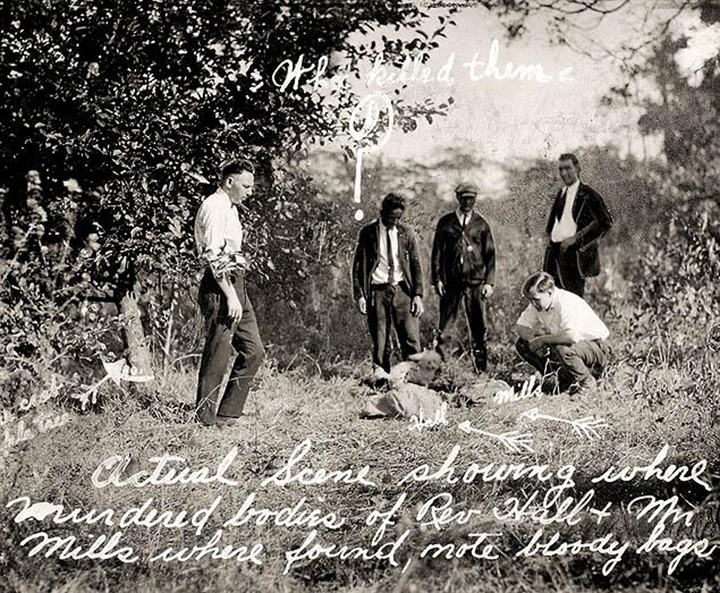 Who killed them
?
Hall
Mills
Actual Scene showing where
murdered bodies of Rev Hall & Mrs
Mills where found, note bloody bags